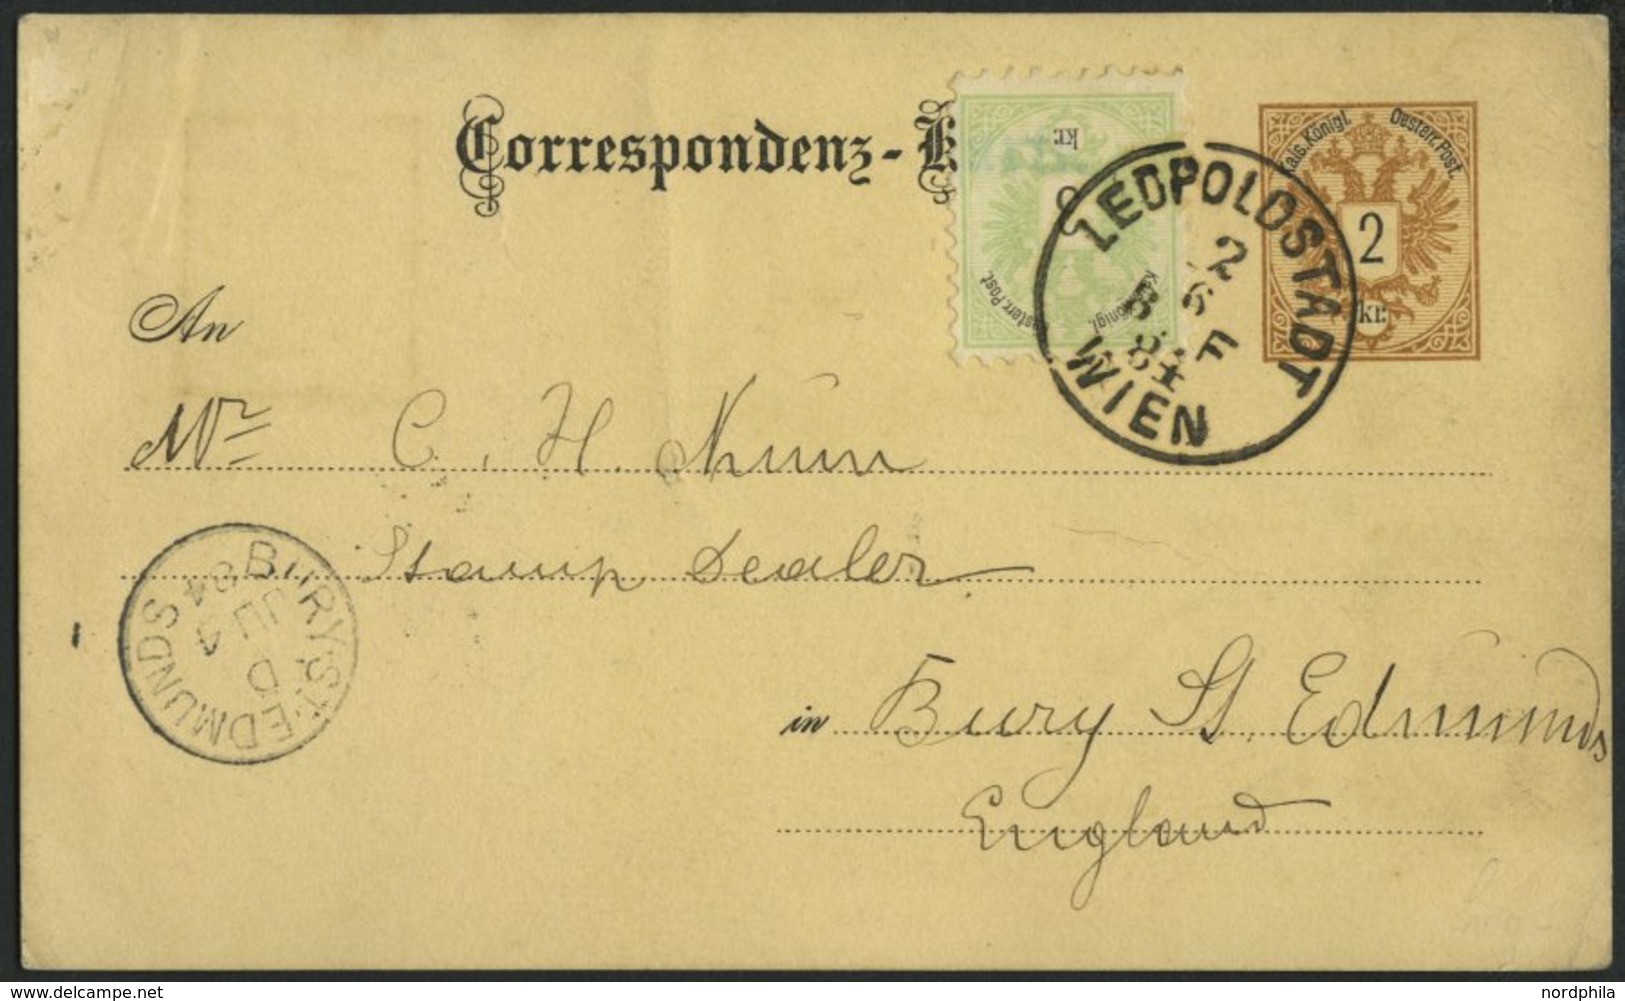 Correspondenz-K
kr.
Oesterr. Post.
Kais. Königl.
LEOPOLDSTADT
2
6
F
84
WIEN
Kais. Königl. Oesterr. Post.
2
kr.
An
Mr C. H. Nunn
Stamp Dealer
BURY·ST·EDMUNDS
D
JU 4
84
in Bury St. Edmunds
England
www.delcampe.net
nordphila